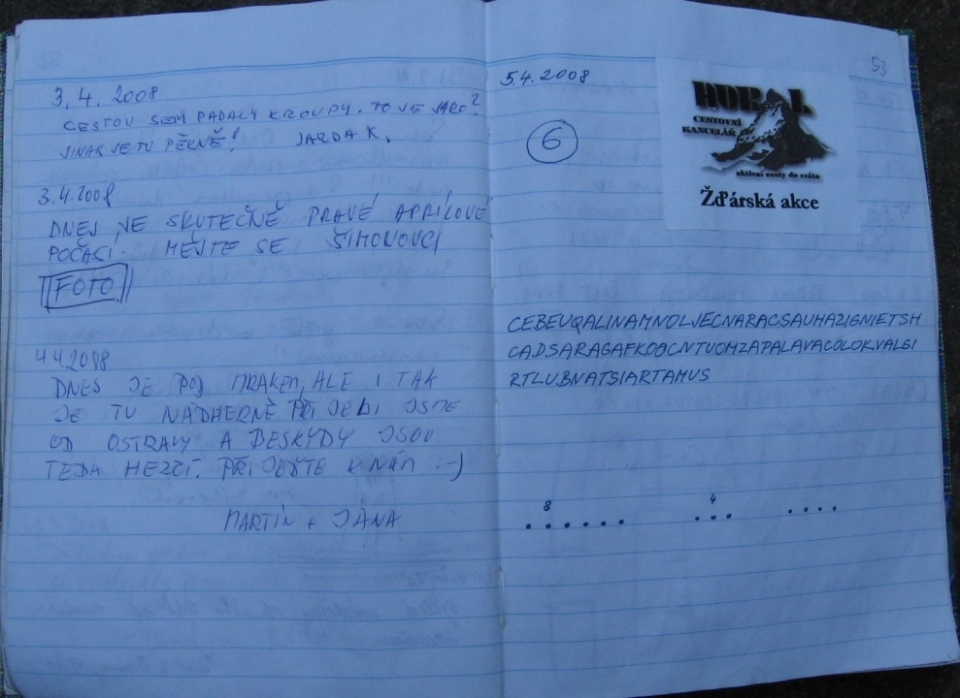 3. 4. 2008
CESTOU SEM PADALY KROUPY. TO JE JARO?
JINAK JE TU PĚKNĚ! JARDA K.
3.4.2008
DNES JE SKUTEČNĚ PRAVÉ APRÍLOVÉ
POČASÍ. MĚJTE SE ŠIMONOVCI
FOTO
4.4.2008
DNES JE POD MRAKEM, ALE I TAK
JE TU NÁDHERNĚ PŘIJELI JSME
OD OSTRAVY A BESKYDY JSOU
TEDA HEZČÍ. PŘIJEĎTE K NÁM :-)
MARTIN + JANA
53
5.4.2008
6
CESTOVNÍ
KANCELÁŘ
všemi cesty do světa
Žďárská akce
CEBEUQALINAMNOLJECNARACSAUHAZIGNIETSH
CADSARAGAFKOOCNTUOMZAPALAVACOLOKVALGI
RTLUBNATSIARTAMUS
8 4